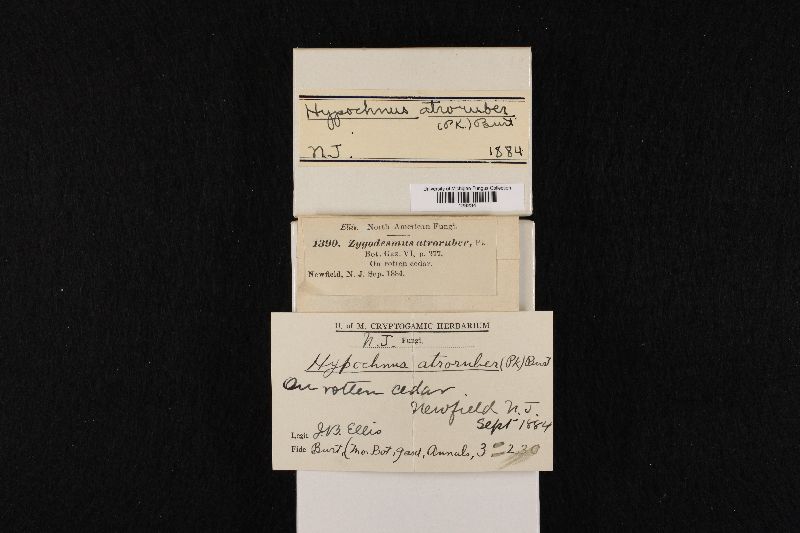 Hypochnus atroruber
(Pk.) Burt
N.J. 1884
University of Michigan Fungus Collection
Ellis. North American Fungi.
1390. Zygodesmus atroruber, Pk.
Bot. Gaz. VI, p. 277.
On rotten cedar.
Newfield, N. J. Sep. 1884.
U. of M. CRYPTOGAMIC HERBARIUM
N.J. Fungi.
Hypochnus atroruber (Pk) Burt
On rotten cedar.
Newfield N.J.
Sept 1884
Legit J.B. Ellis
Fide Burt, (Mo. Bot. Gard, Annals, 3 = 230